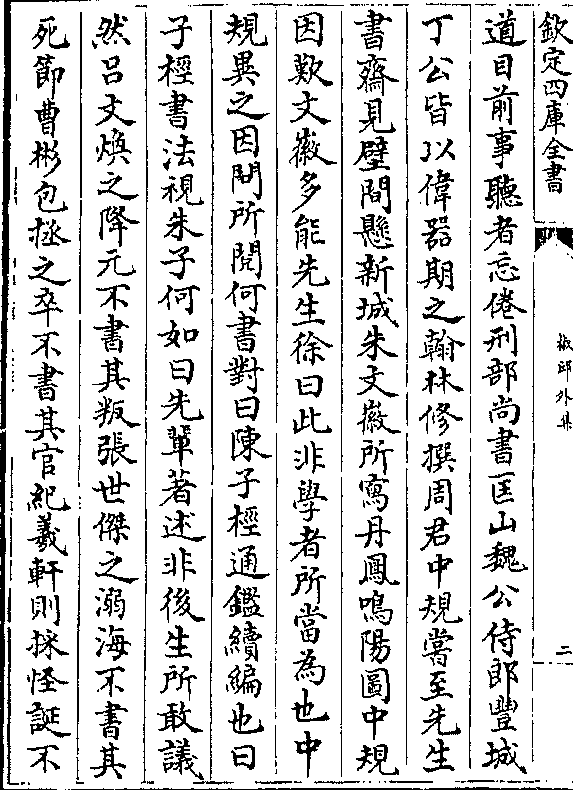 欽定四庫全書
椒邱外集
二
道目前事聽者忘倦刑部尚書匡山魏公侍郎豐城
丁公皆以偉器期之翰林修撰周君中規嘗至先生
書齋見壁間懸新城朱文徽所寫丹鳳鳴陽圖中規
因歎文徽多能先生徐曰此非學者所當為也中
規異之因問所閱何書對曰陳子桱通鑑續編也曰
子桱書法視朱子何如曰先輩著述非後生所敢議
然吕文煥之降元不書其叛張世傑之溺海不書其
死節曹彬包拯之卒不書其官紀羲軒則採怪誕不